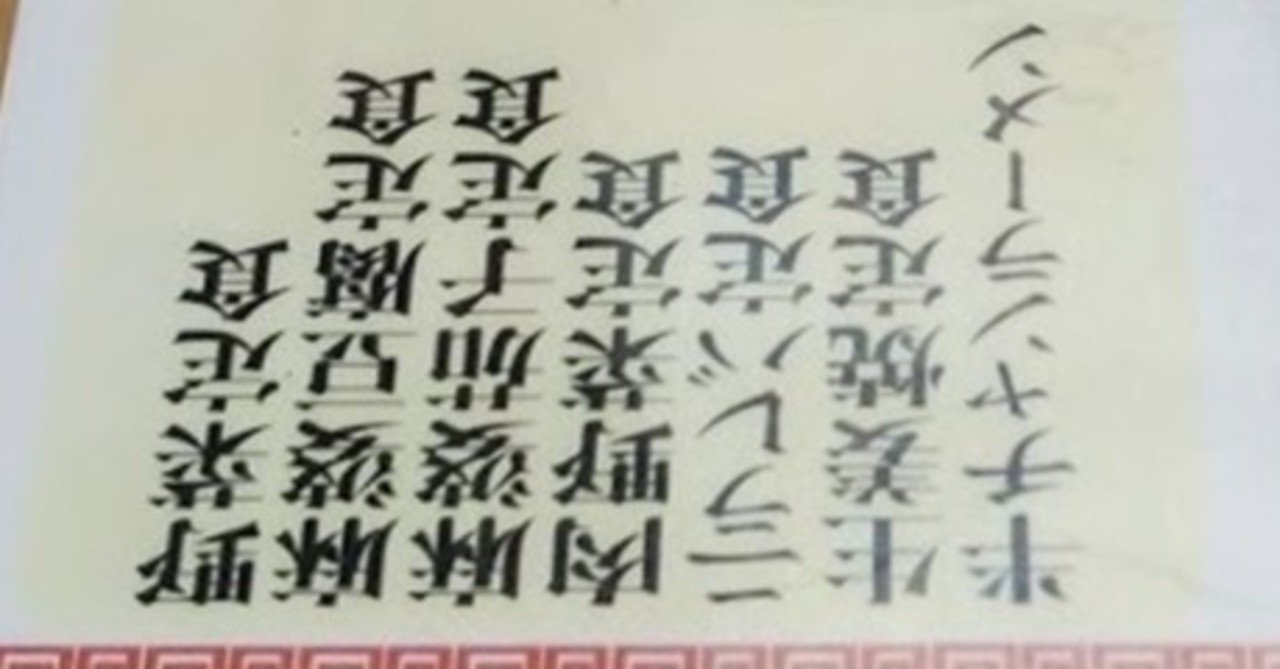 野菜定食
麻婆豆腐定食
麻婆茄子定食
肉野菜定食
ニラレバ定食
生姜焼定食
半チャンラーメン